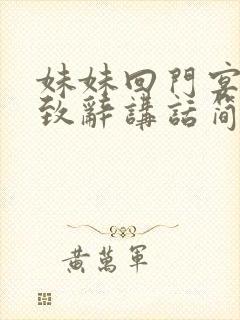 妹妹回門宴
致辭講話简
黃萬軍